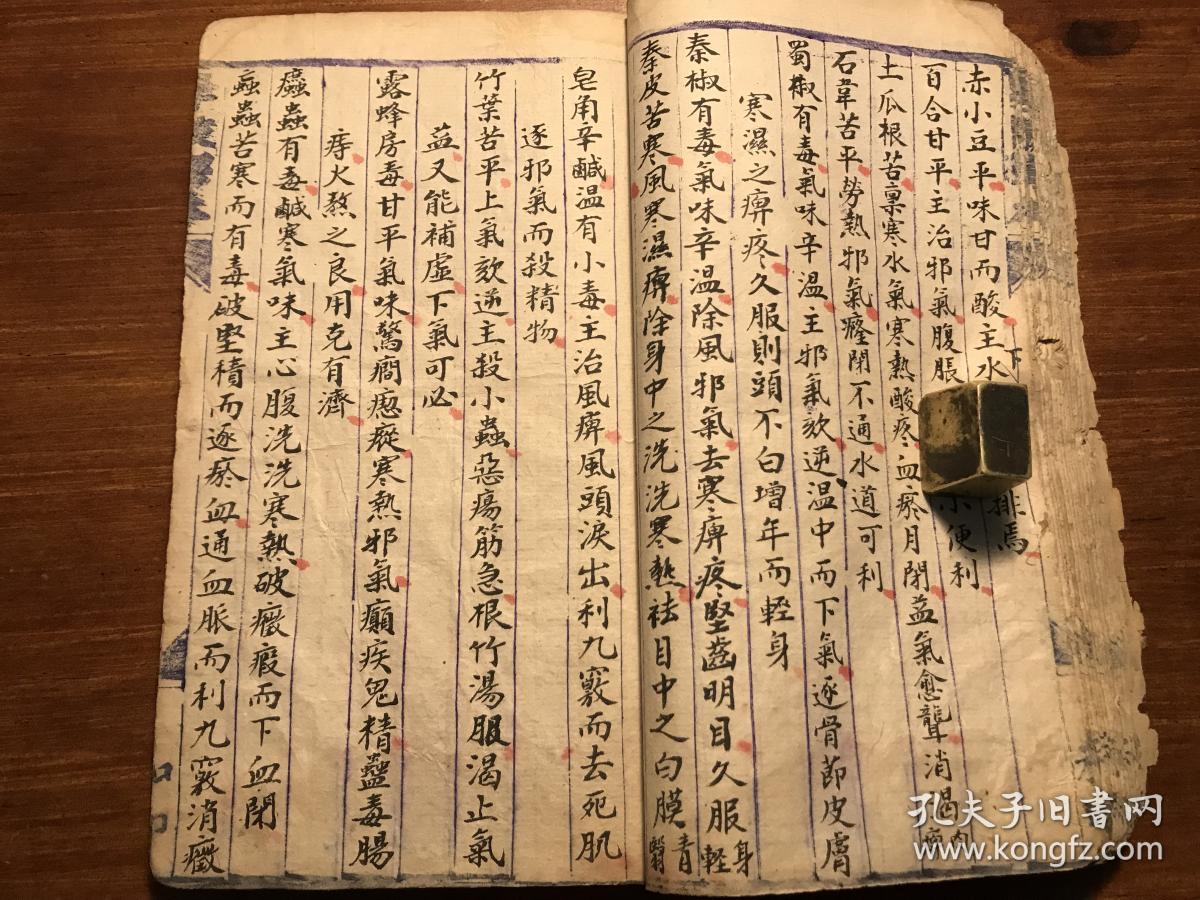 赤小豆平味甘而酸主水下排焉
百合甘平主治邪氣腹脹小便利
土瓜根苦稟寒水氣寒熱酸疼血瘀月閉益氣愈聾消渴內
石韋苦平勞熱邪氣癃閉不通水道可利
蜀椒有毒氣味辛温主邪氣欬逆温中而下氣逐骨節皮膚
寒濕之痹疼久服則頭不白增年而輕身
秦椒有毒氣味辛温除風邪氣去寒痹疼堅齒明目久服輕身
秦皮苦寒風寒濕痹除身中之洗洗寒熱祛目中之白膜青翳
皂角辛鹹温有小毒王治風痹風頭淚出利九竅而去死肌
逐邪氣而殺精物
竹葉苦平上氣欬逆主殺小蟲惡瘍筋急根竹湯服渴止氣
益又能補虛下氣可必
露蜂房毒甘平氣味驚癎瘛瘲寒熱邪氣癲疾鬼精蠱毒腸
痔火熬之良用克有濟
䗪蟲有毒鹹寒氣味主心腹洗洗寒熱破癥瘕而下血閉
蝱蟲苦寒而有毒破堅積而逐瘀血通血脈而利九竅消癥
孔夫子旧書网
www.kongfz.com